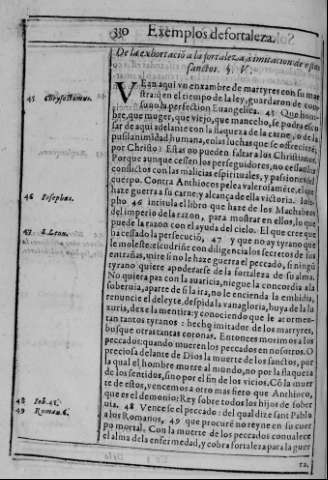 310 Exemplos de fortaleza.
De la exhortació a la fortaleza a imitacion de estos
sanctos. §. V.
VEan aqui vn enxambre de martyres con su ma
strà en el tiempo de la ley, guardaron de con
suno la perfection Euangelica. 45 Que hom-
bre, que muger, que viejo, que mancebo, se podra escu
sar de aqui adelante con la flaqueza de la carne, o de la
pusilanimidad humana, en las luchas que se offreciere,
por Christo? Estas no pueden faltar a los Christianos.
Porque aunque cessen los perseguidores, no cessan los
conflictos con las malicias espirituales, y passiones del
cuerpo. Contra Anthiocos pelea valerosaméte, el que
haze guerra a su carne: y alcança de ella victoria. Iose-
pho 46 intitula el libro que haze de los Machabeos
del imperio de la razon, para mostrar en ellos, lo que
puede la razon con el ayuda del cielo. El que cree que
ha cessado la persecució, 47 y que no ay tyrano que
le moleste: escudriñe con diligencia los secretos de sus
entrañas, mire si no le haze guerra el peccado, si ningú
tyrano quiere apoderarse de la fortaleza de su alma.
No quiera paz con la auaricia, niegue la concordia a la
soberuia, aparte de si la ira, no le encienda la embidia,
renuncie el deleyte, despida la vanagloria, huya de la lu
xuria, dexe la mentira: y conociendo que le atormen-
tan tantos tyranos: hecho imitador de los martyres,
busque otras tantas coronas. Entonces morimos a los
peccados: quando mueren los peccados en nosotros. O
preciosa delante de Dios la muerte de los sanctos, por
la qual el hombre muere al mundo, no por la flaqueza
de los sentidos, sino por el fin de los vicios. Có la muer
te de estos, vencemos a otro mas fiero que Anthioco,
que es el demonio: Rey sobre todos los hijos de sober
uia. 48 Vencese el peccado: del qual dize sant Pablo
a los Romanos, 49 que procuré no reyne en su cuer
po mortal. Con la muerte de los peccados conualece
el alma de la enfermedad, y cobra fortaleza para la guer
ra.
45 Chrysostomus.
46 Iosephus.
47 S. Leon.
48 Iob. 41.
49 Roman. 6.